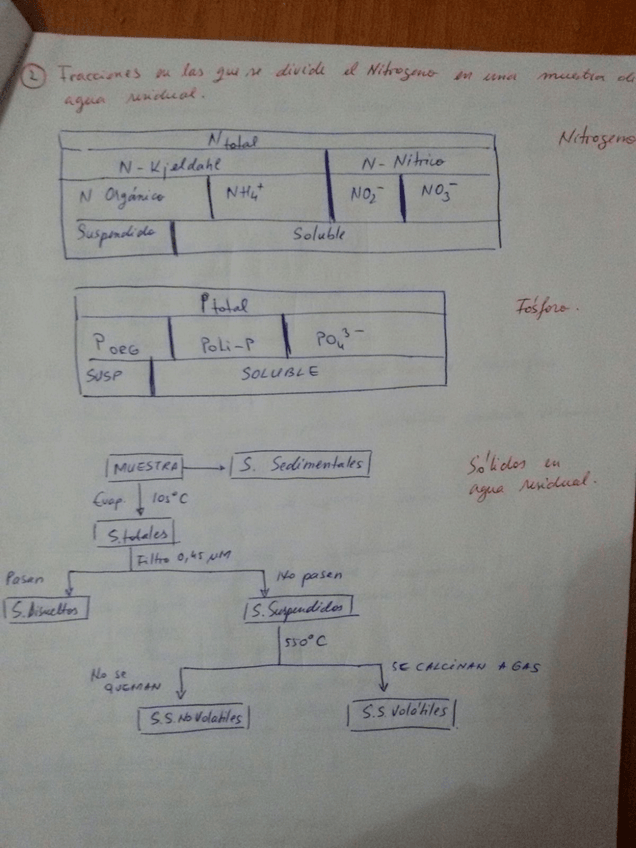 2 Fracciones en las que se divide el Nitrogeno en una muestra de
agua residual.
Nitrogeno
N total
N-Kjeldahl N-Nítrico
N Orgánico NH4+ NO2- NO3-
Suspendido Soluble
Fósforo.
P total
P ORG Poli-P PO4 3-
SUSP SOLUBLE
Sólidos en
agua residual.
MUESTRA S. Sedimentales
Evap. 105°C
S. totales
Filtro 0,45 µM
Pasan No pasan
S. Disueltos S. Suspendidos
550°C
No se
QUEMAN
SE CALCINAN A GAS
S.S. No Volatiles S.S. Volátiles